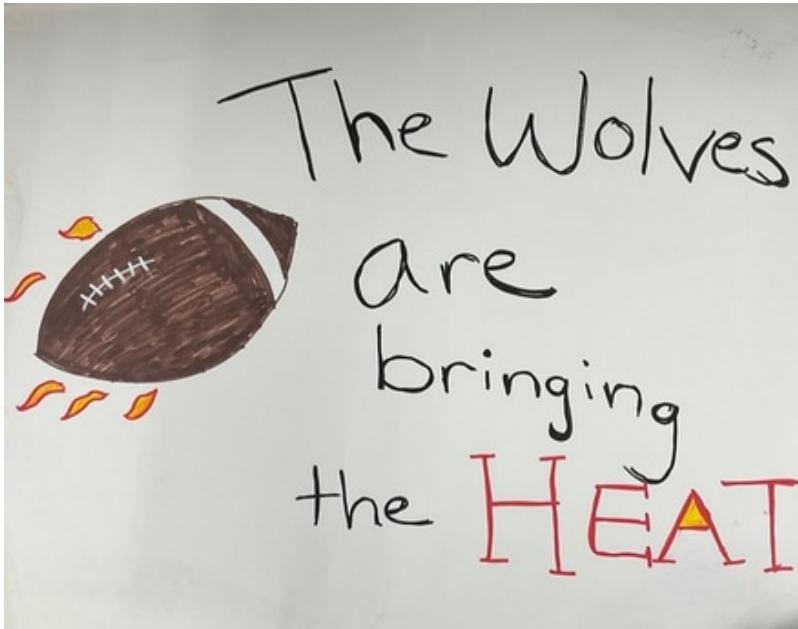 The Wolves
are
bringing
the HEAT